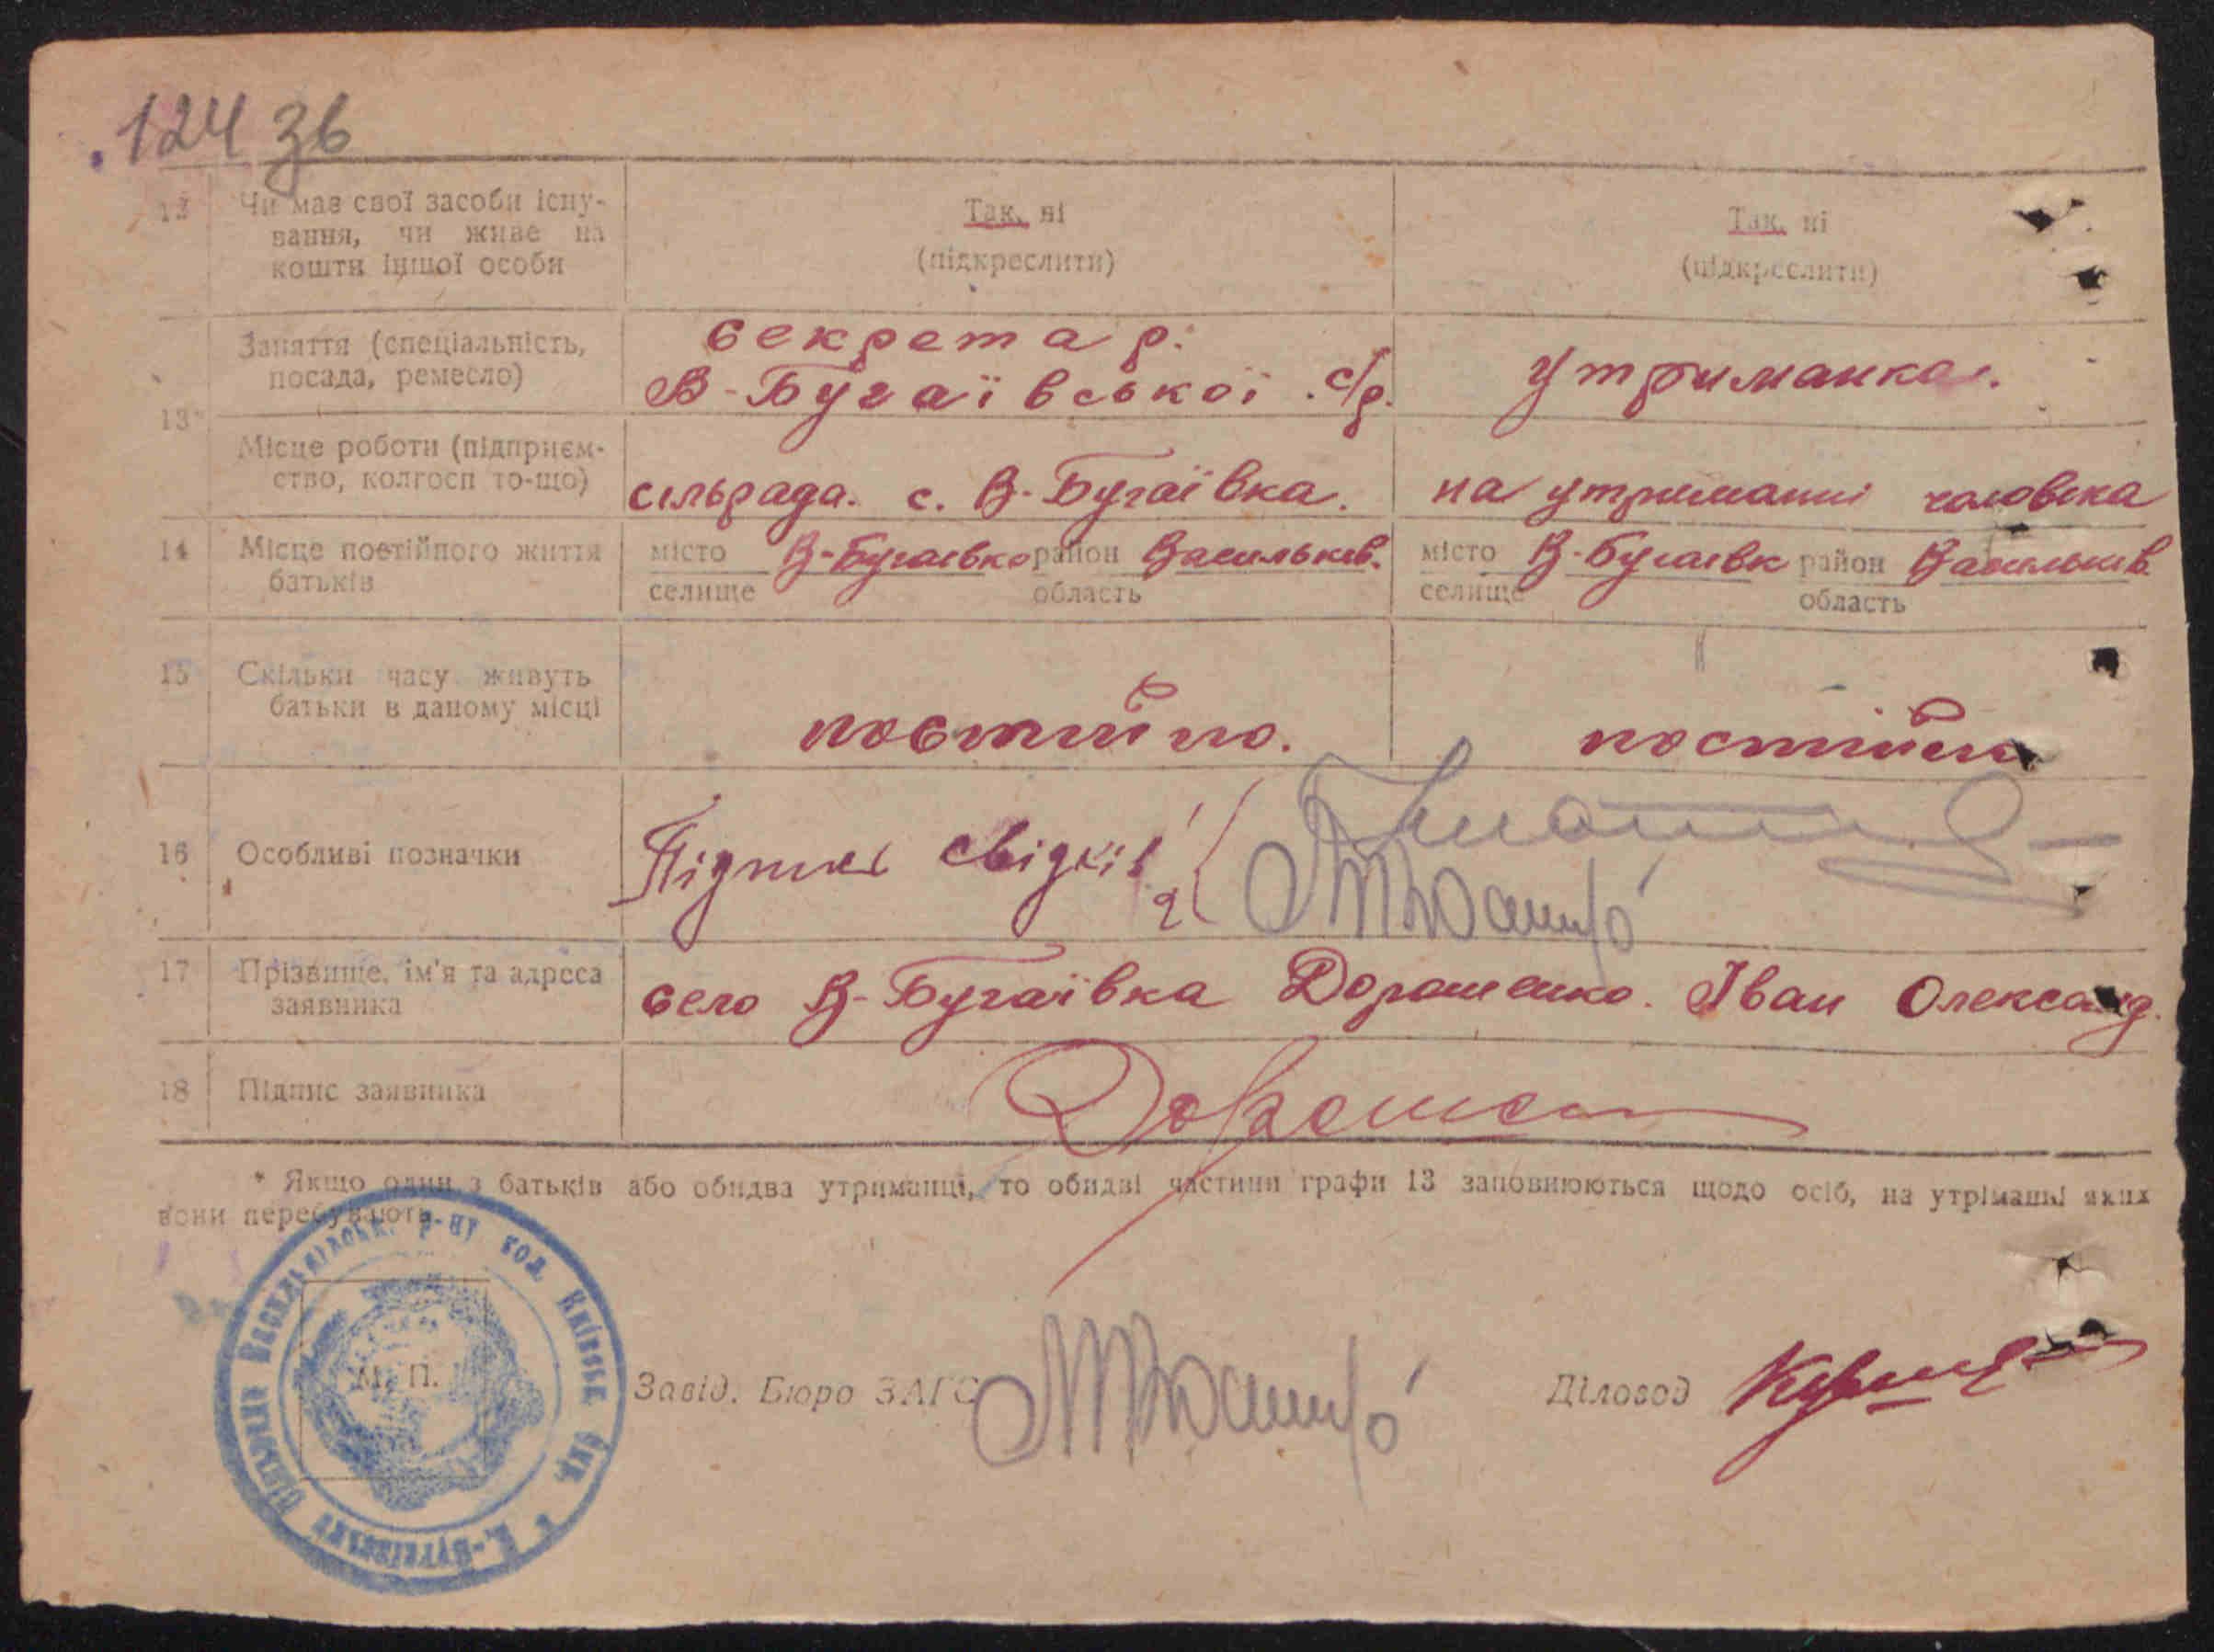 124 зв
12 Чи має свої засоби існу-
вання, чи живе на
кошти іншої особи
Так, ні
(підкреслити)
Так, ні
(підкреслити)
13*
Заняття (спеціальність,
посада, ремесло)
секретар.
В-Бугаївської с/р.
Утриманка.
Місце роботи (підприєм-
ство, колгосп то-що)
сільрада. с. В-Бугаївка.
на утриманні чоловіка
14 Місце постійного життя
батьків
місто В-Бугаевка район Васильків.
селище область
місто В-Бугаевк район Васильків
селище область
15 Скільки часу живуть
батьки в даному місці
постийно.
постійно
16 Особливі позначки
Підписі свідків
17 Прізвище, ім'я та адреса
заявника
село В-Бугаївка Дорошенко. Іван Олександ.
18 Підпис заявника
Дорошен
* Якщо один з батьків або обидва утриманці, то обидві частини графи 13 заповнюються щодо осіб, на утріманні яких
вони перебувають.
М. П.
Завід. Бюро ЗАГС
Діловод